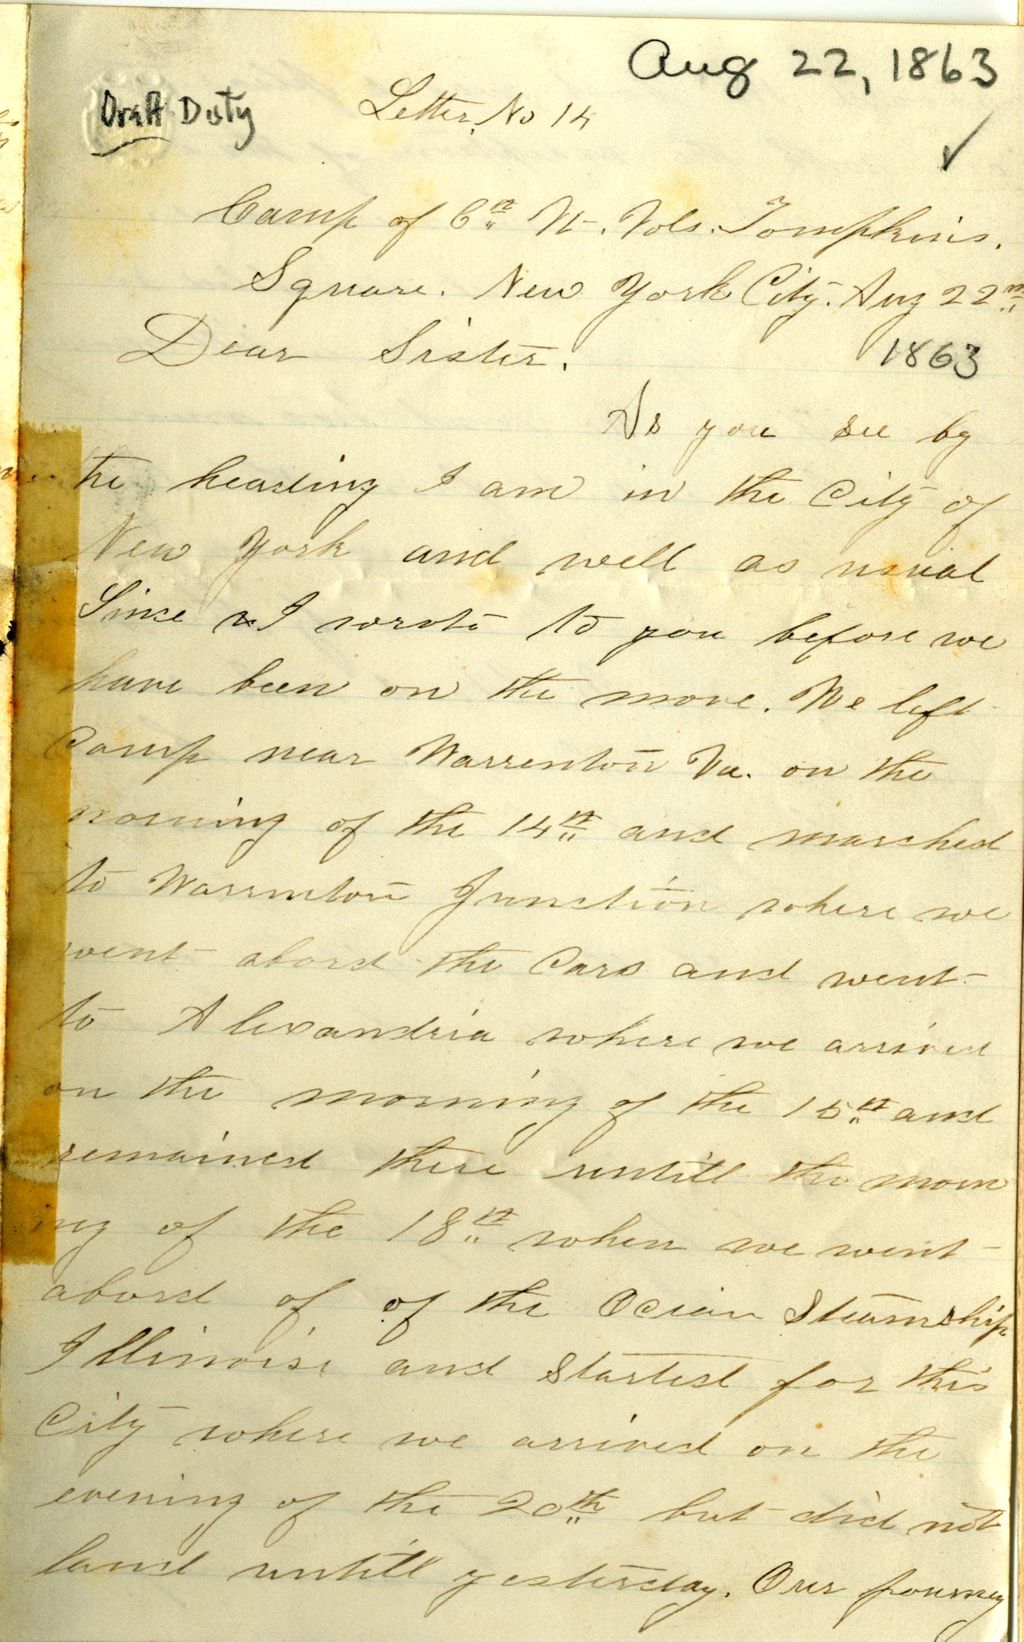 Aug 22, 1863
Draft Duty
Letter No 14
Camp of 6th Vt. Vols. Tompkins.
Square. New York City. Aug 22nd
1863
Dear Sister.
As you see by
the heading I am in the City of
New York and well as usual
Since I wrote to you before we
have been on the move. We left
Camp near Warrenton Va. on the
morning of the 14th and marched
to Warrenton Junction where we
went abord the Cars and went
to Alexandria where we arrived
on the morning of the 15th and
remained there untill the morn
ing of the 18th when we went
abord of of the Ocean Steamship
Illinoise and Started for this
City where we arrived on the
evening of the 20th but did not
land untill yesterday. Our journey